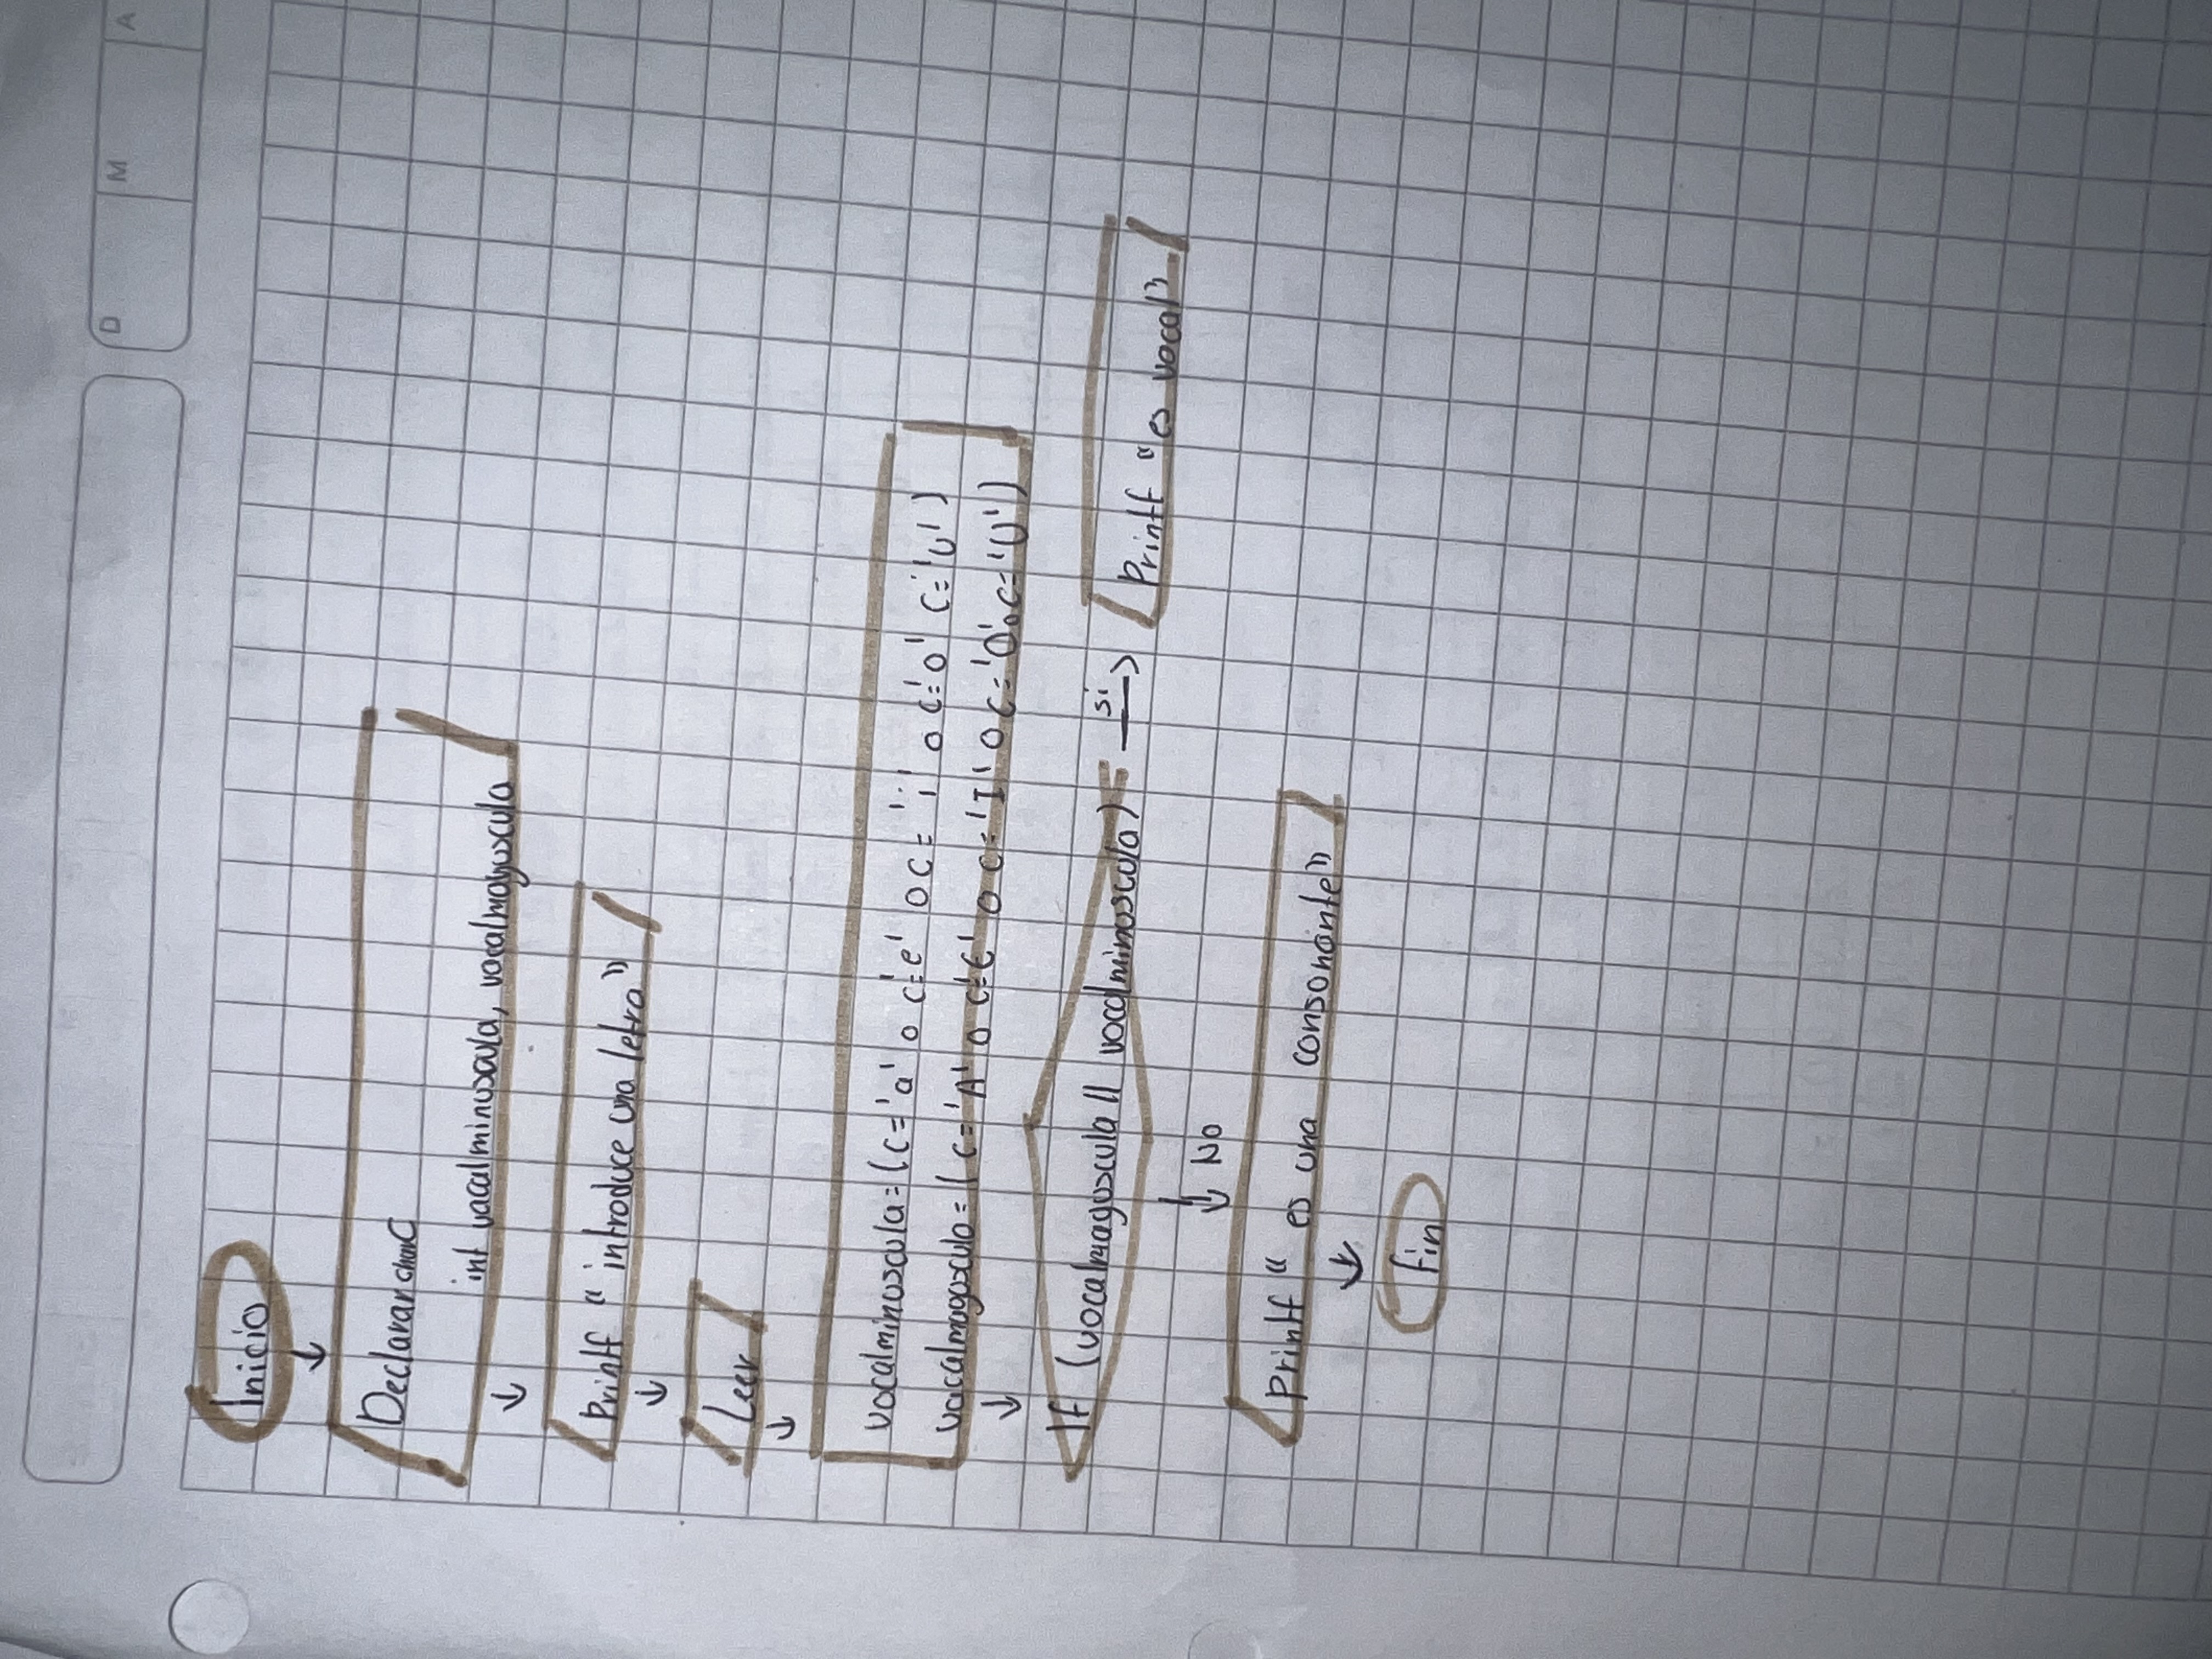 D M A
Inicio
Declarar char C
int vocalminuscula, vocalmayuscula
Printf " introduce una letra"
Leer
vocalminuscula = (c = 'a' o c='e' o c = 'i' o c='o' c = 'u' )
vocalmayuscula = ( c = 'A' o c='E' o c = 'I' o c = 'O' o c = 'U' )
If (vocalmayuscula || vocalminuscula) =
si
Printf "es vocal"
No
printf " es una consonante"
fin